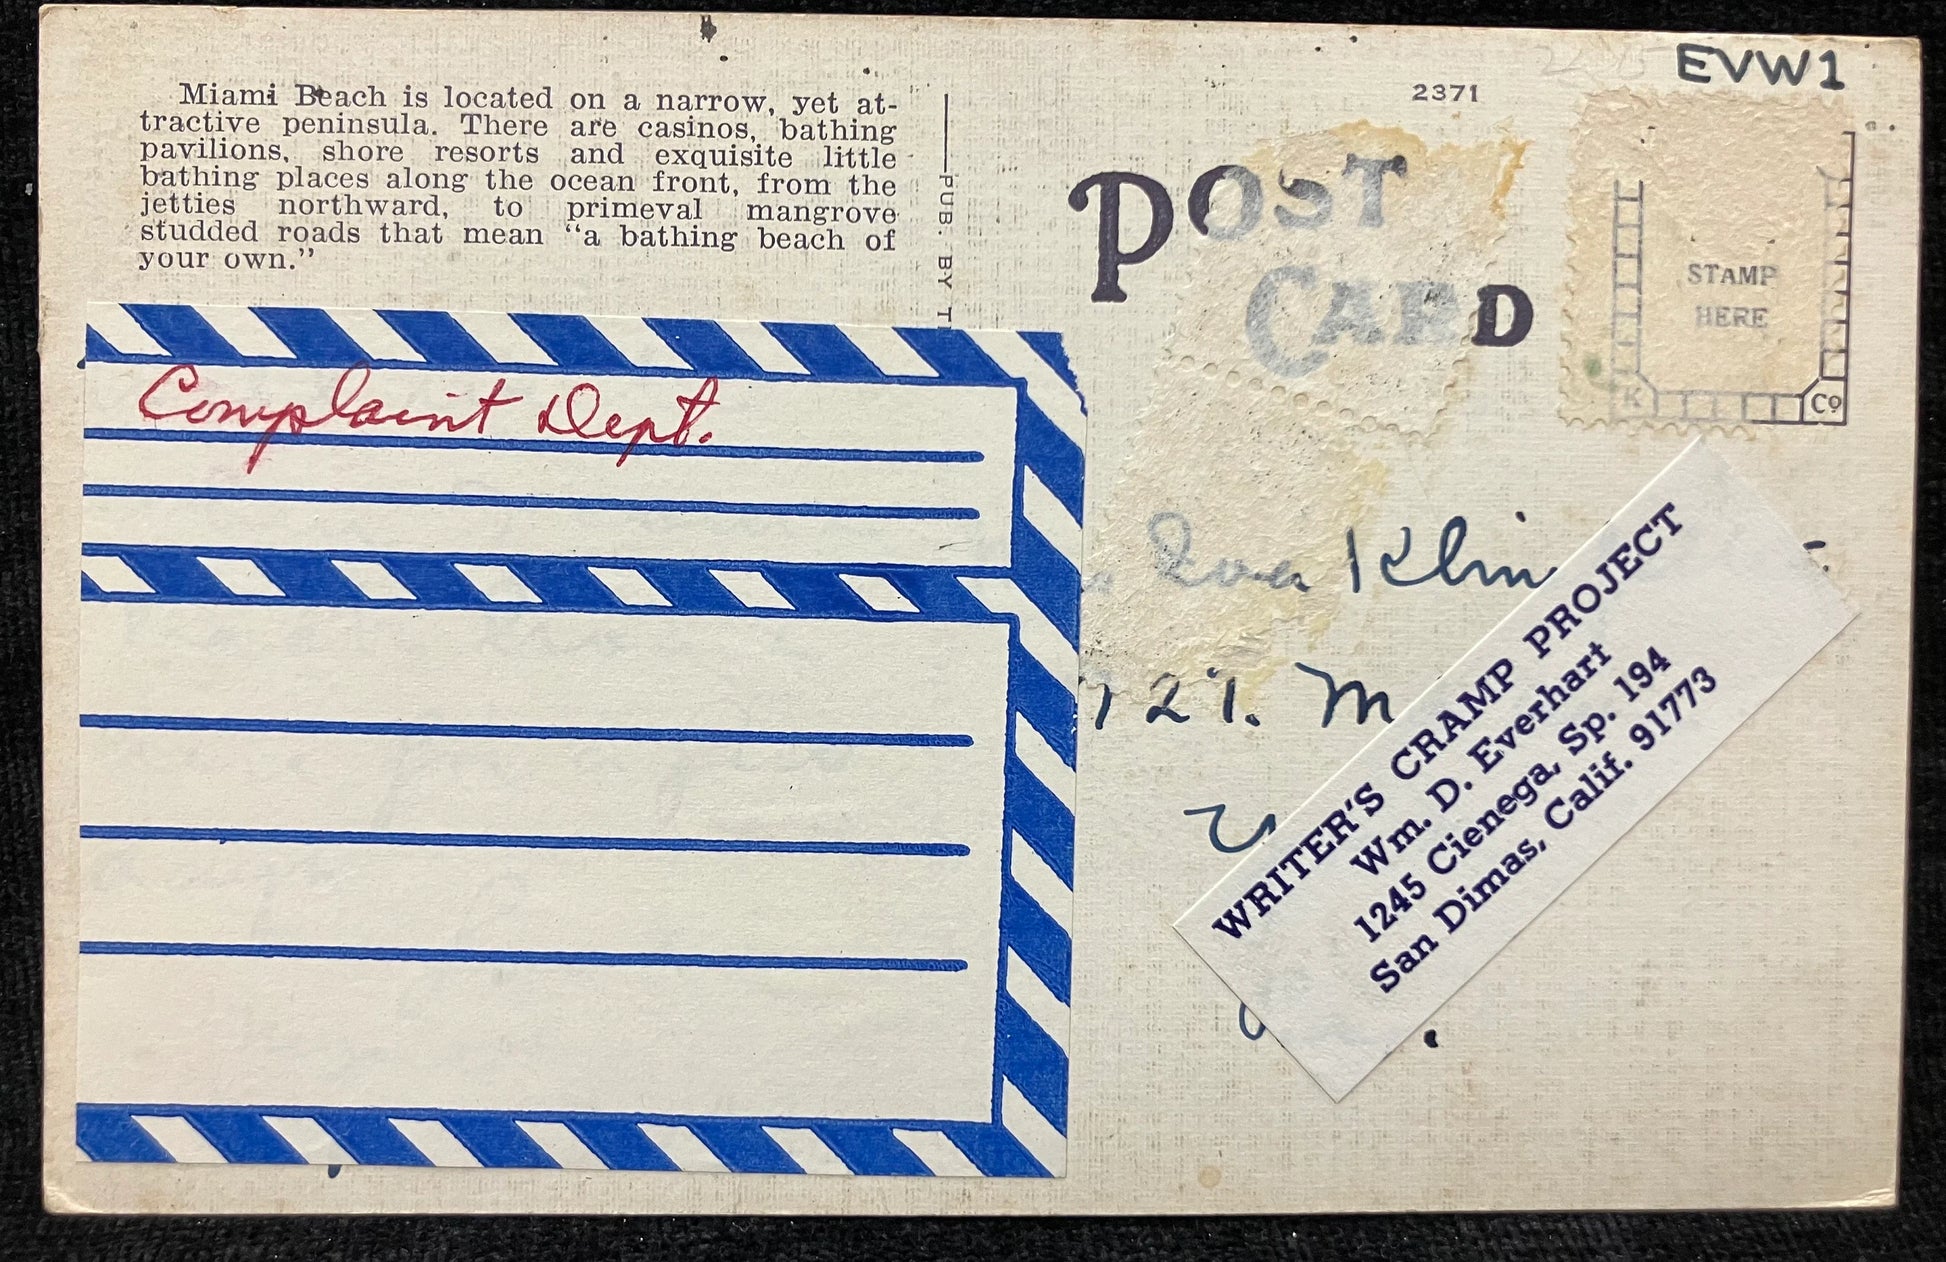 EVW1
2371
Miami Beach is located on a narrow, yet at-
tractive peninsula. There are casinos, bathing
pavilions, shore resorts and exquisite little
bathing places along the ocean front, from the
jetties northward, to primeval mangrove
studded roads that mean “a bathing beach of
your own.”
PUB. BY
POST
CARD
STAMP
HERE
K Co
Complaint Dept.
721. M
WRITER'S CRAMP PROJECT
Wm. D. Everhart
1245 Cienega, Sp. 194
San Dimas, Calif. 91773